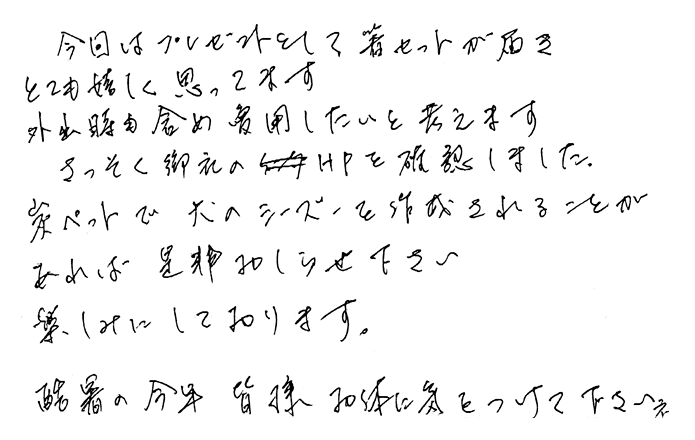 今回はプレゼントとして箸セットが届き
とても嬉しく思ってます
外出時も含め愛用したいと考えます
さっそく御社のHPを確認しました。
ペットで犬のシーズーを作成されることが
あれば是非お知らせ下さい
楽しみにしております。
酷暑の今年皆様お体に気をつけて下さいネ